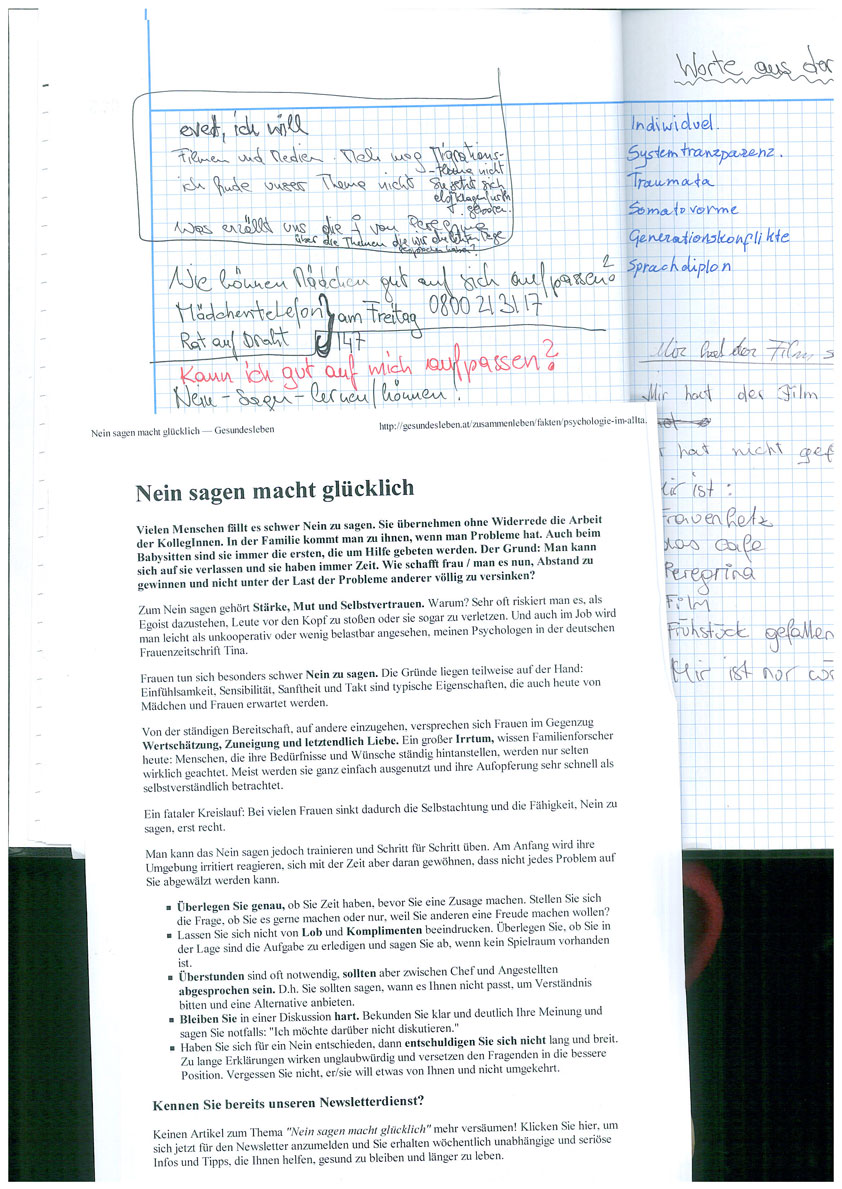 evet, ich will
Filmen und Medien. Meli mag Migrations-
thema nicht
ich finde unser Thema nicht
Was erzählt uns die von Peregrina
über die Themen die wir die letzten Tage
Wie können Mädchen gut auf sich aufpassen?
Mädchentelefon am Freitag 0800 21 31 17
Rat auf Draht 147
Kann ich gut auf mich aufpassen?
Nein-Sagen-lernen/können!
Worte aus der
Indiwiduel.
Systemtranzparenz.
Traumata
Somatovorme
Generationskonflikte
Sprachdiplon
Mir hat der Film s
Mir hat der Film
hat nicht gef
Mir ist:
Frauenhetz
das Cafe
Peregrina
Film
Frühstück gefallen
Mir ist nur
Nein sagen macht glücklich — Gesundesleben
http://gesundesleben.at/zusammenleben/fakten/psychologie-im-allta.
Nein sagen macht glücklich
Vielen Menschen fällt es schwer Nein zu sagen. Sie übernehmen ohne Widerrede die Arbeit
der KollegInnen. In der Familie kommt man zu ihnen, wenn man Probleme hat. Auch beim
Babysitten sind sie immer die ersten, die um Hilfe gebeten werden. Der Grund: Man kann
sich auf sie verlassen und sie haben immer Zeit. Wie schafft frau / man es nun, Abstand zu
gewinnen und nicht unter der Last der Probleme anderer völlig zu versinken?
Zum Nein sagen gehört Stärke, Mut und Selbstvertrauen. Warum? Sehr oft riskiert man es, als
Egoist dazustehen, Leute vor den Kopf zu stoßen oder sie sogar zu verletzen. Und auch im Job wird
man leicht als unkooperativ oder wenig belastbar angesehen, meinen Psychologen in der deutschen
Frauenzeitschrift Tina.
Frauen tun sich besonders schwer Nein zu sagen. Die Gründe liegen teilweise auf der Hand:
Einfühlsamkeit, Sensibilität, Sanftheit und Takt sind typische Eigenschaften, die auch heute von
Mädchen und Frauen erwartet werden.
Von der ständigen Bereitschaft, auf andere einzugehen, versprechen sich Frauen im Gegenzug
Wertschätzung, Zuneigung und letztendlich Liebe. Ein großer Irrtum, wissen Familienforscher
heute: Menschen, die ihre Bedürfnisse und Wünsche ständig hintanstellen, werden nur selten
wirklich geachtet. Meist werden sie ganz einfach ausgenutzt und ihre Aufopferung sehr schnell als
selbstverständlich betrachtet.
Ein fataler Kreislauf: Bei vielen Frauen sinkt dadurch die Selbstachtung und die Fähigkeit, Nein zu
sagen, erst recht.
Man kann das Nein sagen jedoch trainieren und Schritt für Schritt üben. Am Anfang wird ihre
Umgebung irritiert reagieren, sich mit der Zeit aber daran gewöhnen, dass nicht jedes Problem auf
Sie abgewälzt werden kann.
▪ Überlegen Sie genau, ob Sie Zeit haben, bevor Sie eine Zusage machen. Stellen Sie sich
die Frage, ob Sie es gerne machen oder nur, weil Sie anderen eine Freude machen wollen?
▪ Lassen Sie sich nicht von Lob und Komplimenten beeindrucken. Überlegen Sie, ob Sie in
der Lage sind die Aufgabe zu erledigen und sagen Sie ab, wenn kein Spielraum vorhanden
ist.
▪ Überstunden sind oft notwendig, sollten aber zwischen Chef und Angestellten
abgesprochen sein. D.h. Sie sollten sagen, wann es Ihnen nicht passt, um Verständnis
bitten und eine Alternative anbieten.
▪ Bleiben Sie in einer Diskussion hart. Bekunden Sie klar und deutlich Ihre Meinung und
sagen Sie notfalls: "Ich möchte darüber nicht diskutieren."
▪ Haben Sie sich für ein Nein entschieden, dann entschuldigen Sie sich nicht lang und breit.
Zu lange Erklärungen wirken unglaubwürdig und versetzen den Fragenden in die bessere
Position. Vergessen Sie nicht, er/sie will etwas von Ihnen und nicht umgekehrt.
Kennen Sie bereits unseren Newsletterdienst?
Keinen Artikel zum Thema "Nein sagen macht glücklich" mehr versäumen! Klicken Sie hier, um
sich jetzt für den Newsletter anzumelden und Sie erhalten wöchentlich unabhängige und seriöse
Infos und Tipps, die Ihnen helfen, gesund zu bleiben und länger zu leben.